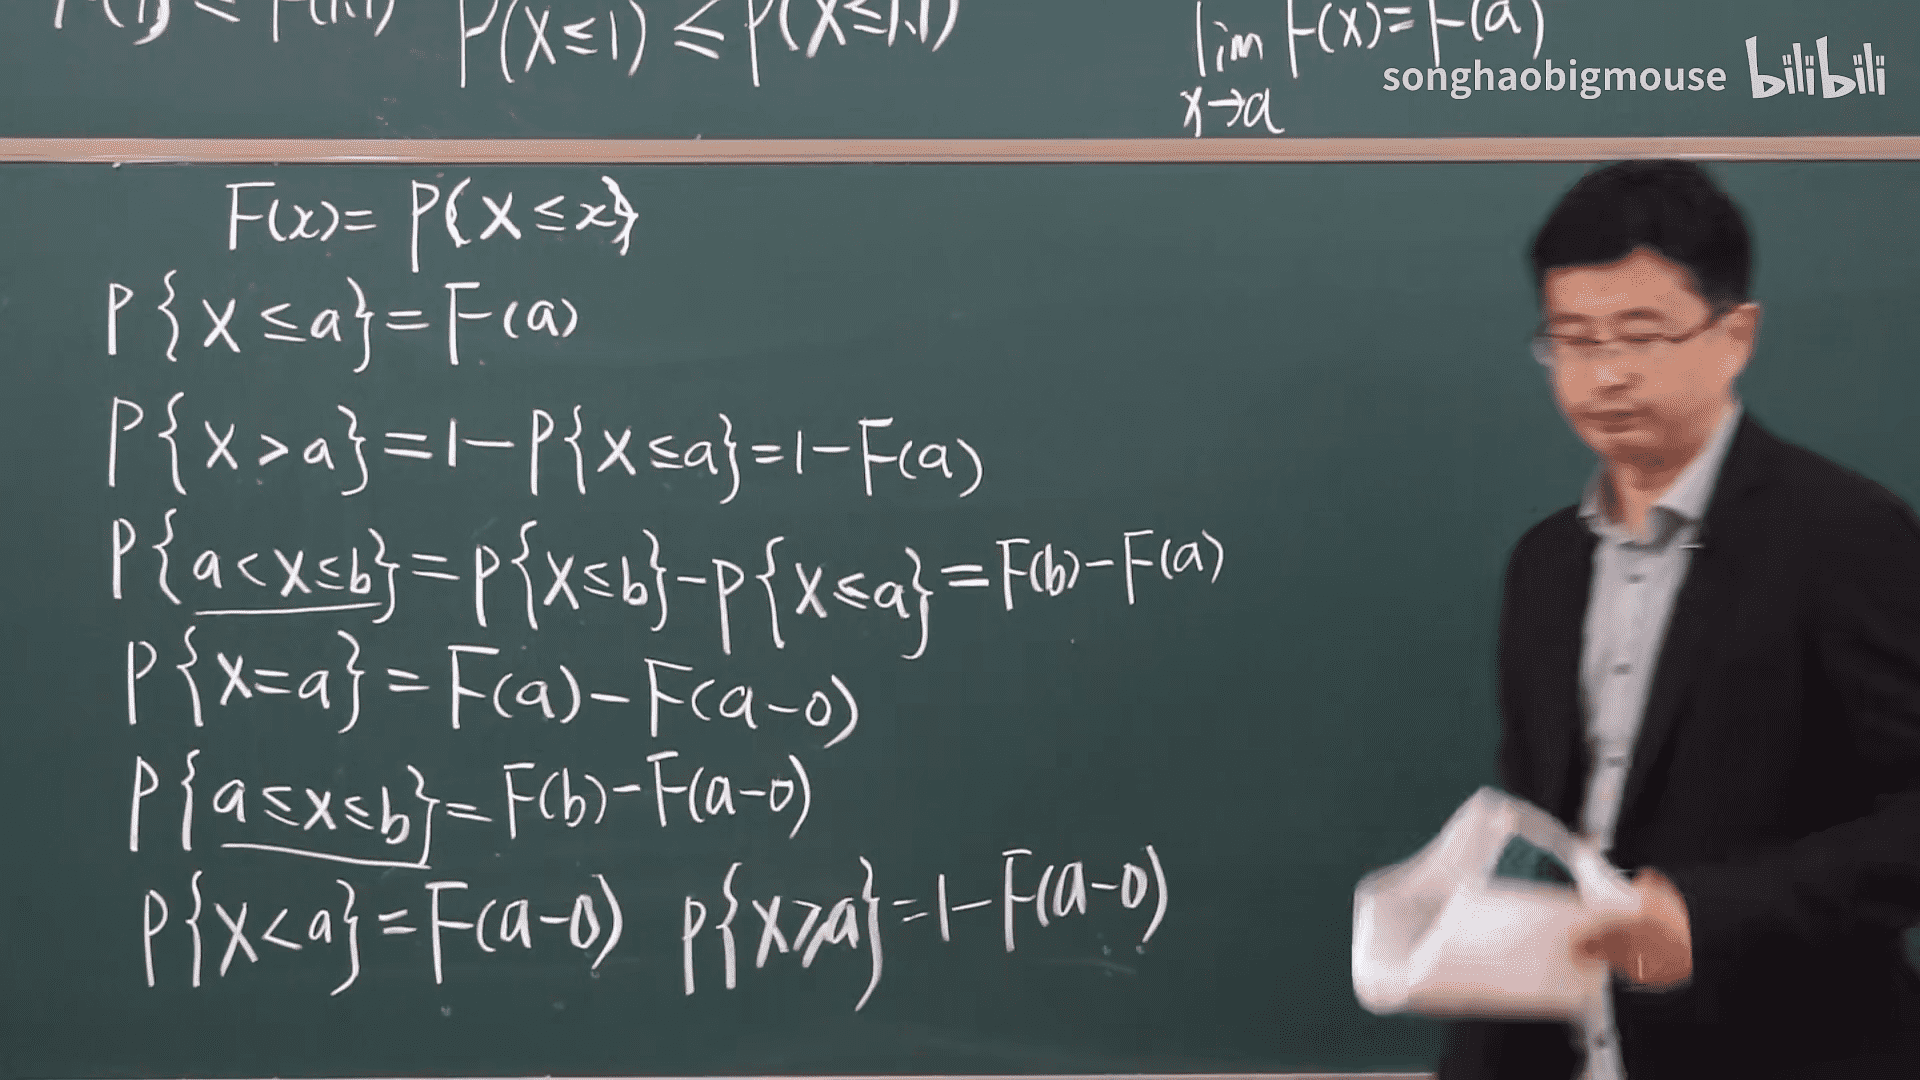 F(1) ≤ F(1.1) P(X≤1) ≤ P(X≤1.1) lim F(x)=F(a)
x→a
songhaobigmouse bilibili
F(x)= P{X≤x}
P{X≤a}=F(a)
P{X>a}=1-P{X≤a}=1-F(a)
P{a<X≤b}=P{X≤b}-P{X≤a}=F(b)-F(a)
P{X=a}=F(a)-F(a-0)
P{a≤X≤b}=F(b)-F(a-0)
P{X<a}=F(a-0) P{X≥a}=1-F(a-0)